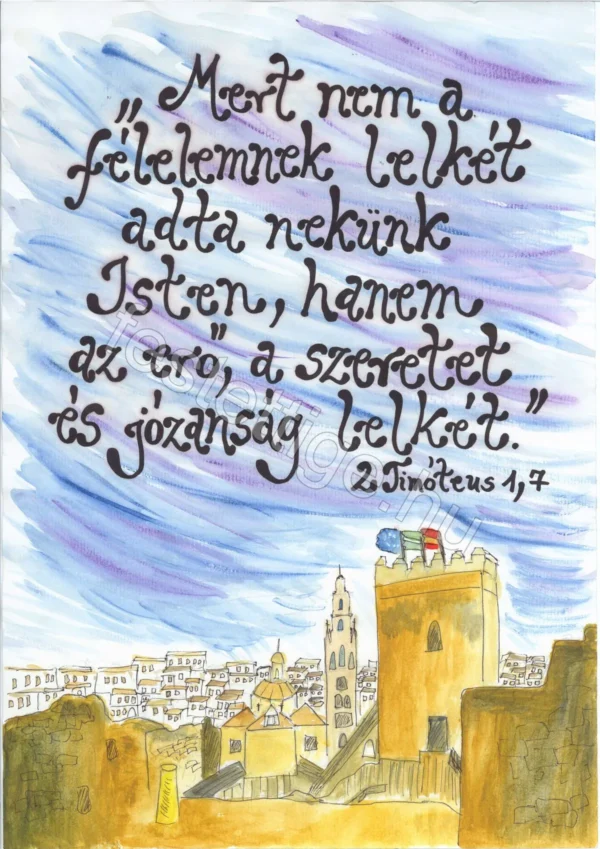 „Mert nem a
félelemnek lelkét
adta nekünk
Isten, hanem
az erő, a szeretet
és józanság lelkét.”
2. Timóteus 1,7
festettige.hu